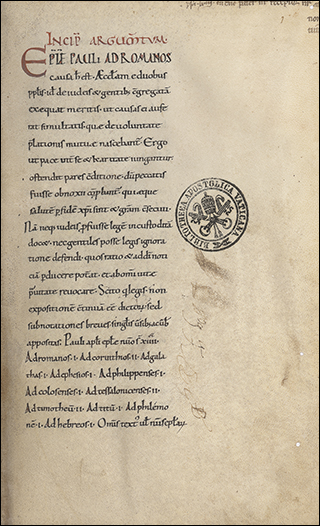 INCIP ARGUMTUM.
EPLE PAULI AD ROMANOS
causa h est. Aecclam e duobus
pplis id de iudeis & gentib; cgregata
exequat meritis. ut causas ei aufe
rat simultatis. quae de voluntate
plationis mutuae nascebant. Ergo
ut pace & karitate iungantur
ostendit pares cditione. du peccatis
fuisse obnoxii qui aeque
salute p fide xpi sint & gram csecuti
Na neq iudeis pfuisse lege incustodita
doc& nec gentiles posse legis ignora
tione defendi. quos ratio & ad di noti
cia pducere poterat. & ab omi vitae
pravitate revocare. Scito q legis. non
expositione ctinua ee dictoru sed
subnotationes breves singlis versibus
appositas. Pauli apli eple nuo s xiiii.
Ad romanos. i. Ad corinthios. ii. Ad gala
thas. i. Ad ephesios. i. Ad philippenses. i.
Ad colosenses. i. Ad tessalonicenses. ii.
Ad timotheu. ii. Ad titu. i. Ad philemo
ne. i. Ad hebreos. i. Omis text ul
BIBLIOTHECA APOSTOLICA VATICANA